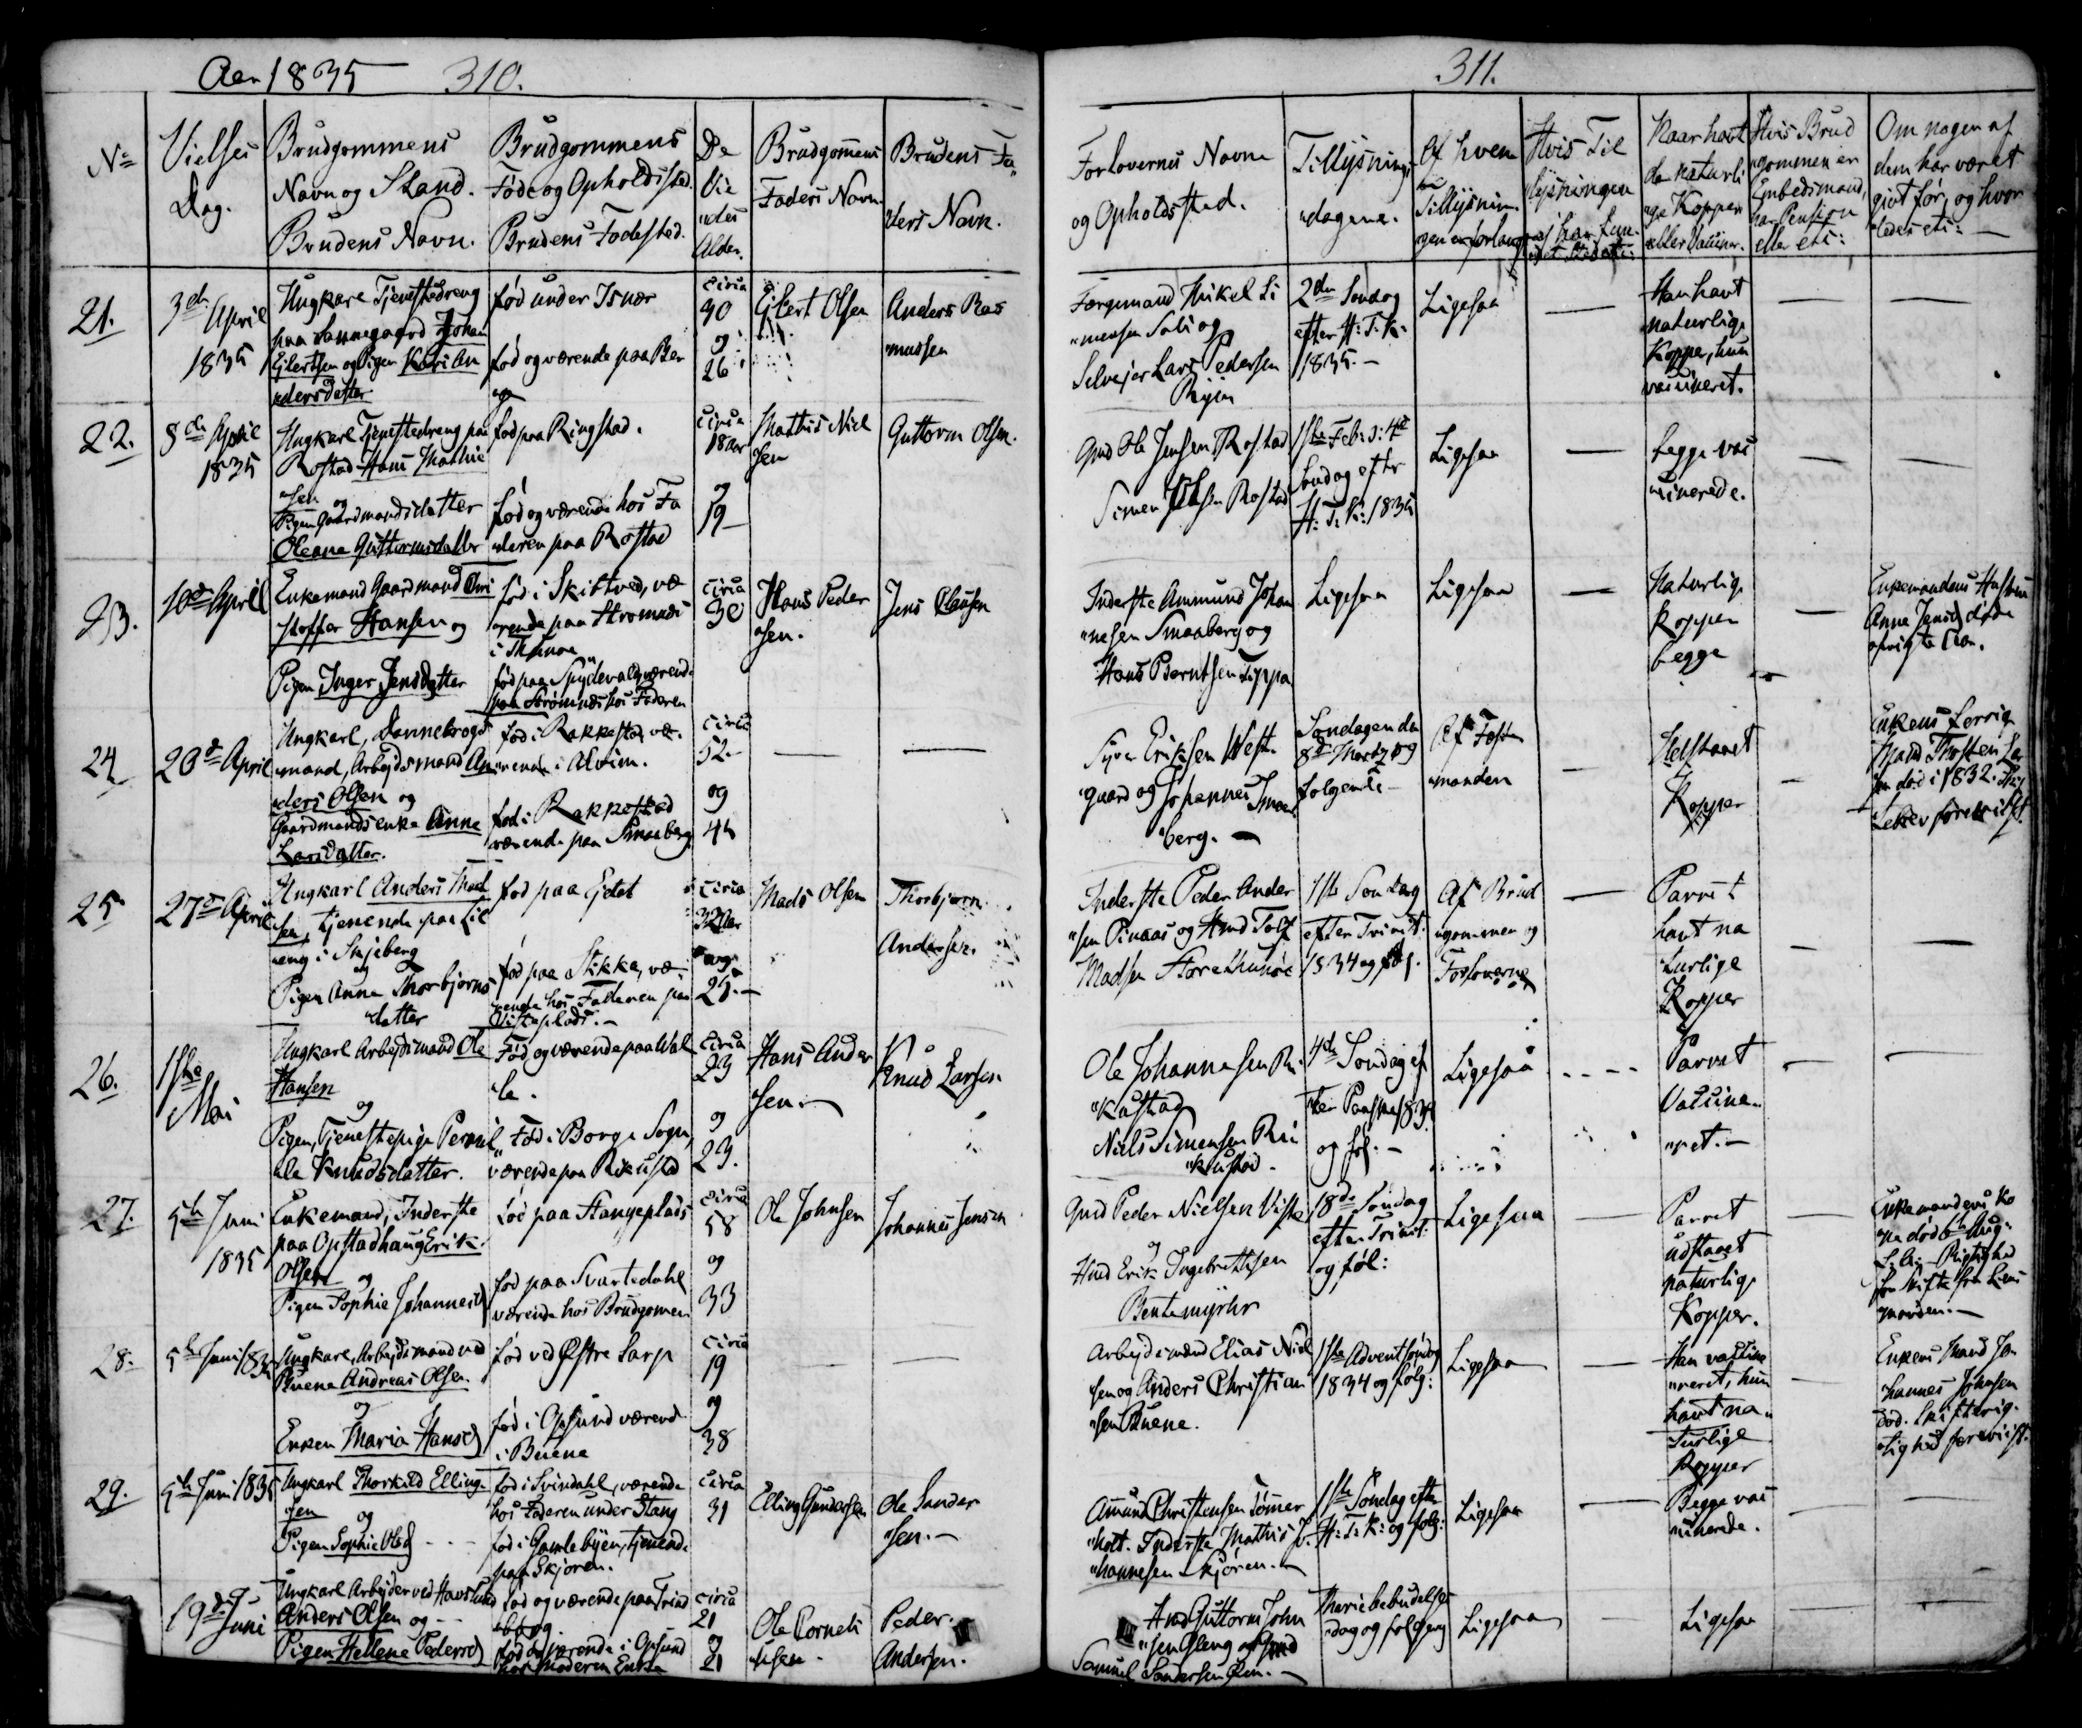 Aar 1835 310.
No
Vielses
Dag.
Brudgommens
Navn og Stand.
Brudens Navn.
Brudgommens
Føde og Opholdssted.
Brudens Fødested.
De
Vie
"des
Alder.
Brudgomens
Faders Navn
Brudens Fa"
ders Navn.
21.
3d April
1835
Ungkarl Tjenestedreng
paa
Johan
Ejlertsen og Pigen Kari An
dersdatter
fød under Isnær
fød og værende paa
circa
30
og
26
Ejlert Olsen
Anders Ras
"mussen
22.
8de April
1835
Ungkarl Tjenestedreng paa
Rostad Hans Mathi
"sen og
Pigen Gaardmandsdatter
Oleana Guttormsdatter
fød paa Ringstad.
fød og værende hos Fa
"deren paa Rostad
circa
18 Aar
og
19
Mathis Niel
sen
Guttorm Olsen.
23.
10de April
Enkemand Gaardmand Chri
stoffer Hansen og
Pigen Inger Jensdatter
fød i Skibtved, væ
rende paa Strømnes
fød paa Spydevold værend.
paa Strømnes hos Faderen
circa
30
Hans Peder
sen.
Jens Clausen
24
20de April
Ungkarl, Dannebrogs
mand, Arbejdsmand An
ders Olsen og
Gaardmands enke Anne
Larsdatter.
fød i Rakkestad væ.
rende i Alvim.
fød i Rakkestad
værende paa Smaaberg
circa
52
og
45
25
27de April
Ungkarl Anders Mad
sen, tjenende paa Lil
eng i Skjeberg
og
Pigen Anna Thorbjørns
datter
fød paa Ejdet
fød paa Stikka, væ
rende hos Faderen paa
Visteplads.
circa
32 Aar
og
25.
Mads Olsen
Thorbjørn
Andersen.
26.
1ste
Mai
Ungkarl Arbejdsmand Ole
Hansen
og
Pigen, Tjenestepige Pernil
le Knudsdatter.
Fød og værende paa Val
le.
Fød i Borge Sogn,
værende paa Rikustad
circa
23
og
23.
Hans Ander
sen.
Knud Larsen
27.
5te Juni
1835
Enkemand, Inderste
paa Opstadhaug Erik
Olsen
og
Pigen Sophie Johannesd
Fød paa Stangeplads
fød paa Svartedahl
værende hos Brudgomen
circa
58
og
33
Ole Johnsen
Johannes Jensen
28.
5te Juni 1835
Ungkarl, Arbejdsmand ved
Buene Andreas Olsen
og
Enken Maria Hansd
Fød ved Østre Sarp
fød i Opsund værend
i Buene
circa
19
og
38
29.
5te Juni 1835
Ungkarl Thorkild Elling
sen
og
Pigen Sophie Olsd
fød i Svindahl, værende
hos Faderen under Stang
fød i Gamlebyen, tjenend.
paa Skjøren.
circa
31
Elling Gundersen
Ole Sander
sen.
19de Juni
Ungkarl Arbejder ved Hafslund
Anders Olsen og
Pigen Hellene Pedersd
Fød og værende paa
fød og værende i Opsund
hos Moderen Enken
circa
21
og
21
Ole Corneli
usen.
Peder
Andersen.
311.
Forlovernes Navne
og Opholdssted.
Tillysnings
"dagene.
Af hvem
Tillysnin
gen er forlangt
Hvis Til
lysningen
Naar havt
de naturli
"ge Kopper
eller Vaccine.
Hvis Brud
gommen er
Embedsmand,
har Pension
eller etc:
Om nogen af
dem har været
givt før, og hvor
"ledes etc:
Færgemand Mikel Si
"mensen Sali og
Selvejer Lars Pedersen
Ryen
2den Søndag
efter H: T: K:
1835.
Ligesaa
Han havt
naturlige
Kopper, hun
vaccineret.
Gmd Ole Jensen Rostad
Simen Rostad
1ste Feb: d: 4de
Søndag efter
H: T: K: 1835
Ligesaa
begge vac
"cinerede.
Inderste Ammund Johan
"nesen Smaaberg og
Hans Berntsen Toppa
Ligesaa
Ligesaa
Naturlige
Kopper
begge
Enkemandens Hustru
Anna Jensd døde
afvigte Aar.
Syver Eriksen West
"gaard og Johannes Smaa
"berg.
Søndagen den
8de Marts og
følgende
Af Fæst
manden
Udstaaet
Kopper
Enkens forrige
Mand Thosten
død i 1832.
Inderste Peder Ander
"sen og Hmd Tolf
Madsen
1ste Søndag
efter Trinit:
1834 og føl.
Af Brud
gommen og
Forloverne
Parret
havt na
turlige
Kopper
Ole Johannesen Ri
"kustad
Niels Simensen Ri
"kustad.
4de Søndag ef
ter Paaske 1835
og føl.
Ligesaa
Parret
Vaccine
"ret.
Gmd Peder Nielsen Viste
og
Hmd Erik Ingebrethsen
Bentemyrhr
18de Søndag
efter Trinit:
og føl:
Ligesaa
Parret
udstaaet
naturlige
Kopper.
Enkemandens Ko
ne død 6te Aug.
for Skifte fra Lens
manden.
Arbejdsmand Elias Niel
sen og Anders Christian
sen Buene.
1ste Advent Søndag
1834 og følg:
Ligesaa
Han vaccine
"neret, hun
havt na
turlige
Kopper
Enkens Mand Jo
hannes Johnsen
død. Skifterig
tighed forevist.
Amund Christensen Tømer
"holt. Inderste Mathis Jo
"hannesen Skjøren.
1ste Søndag efter
H: T: K: og følg:
Ligesaa
Begge vac
cinerede.
Hmd Guttorm John
"sen Gleng og Gmd
Samuel Sandersen
Mariæ bebudelses
dag og følgeng
Ligesaa
Ligesaa